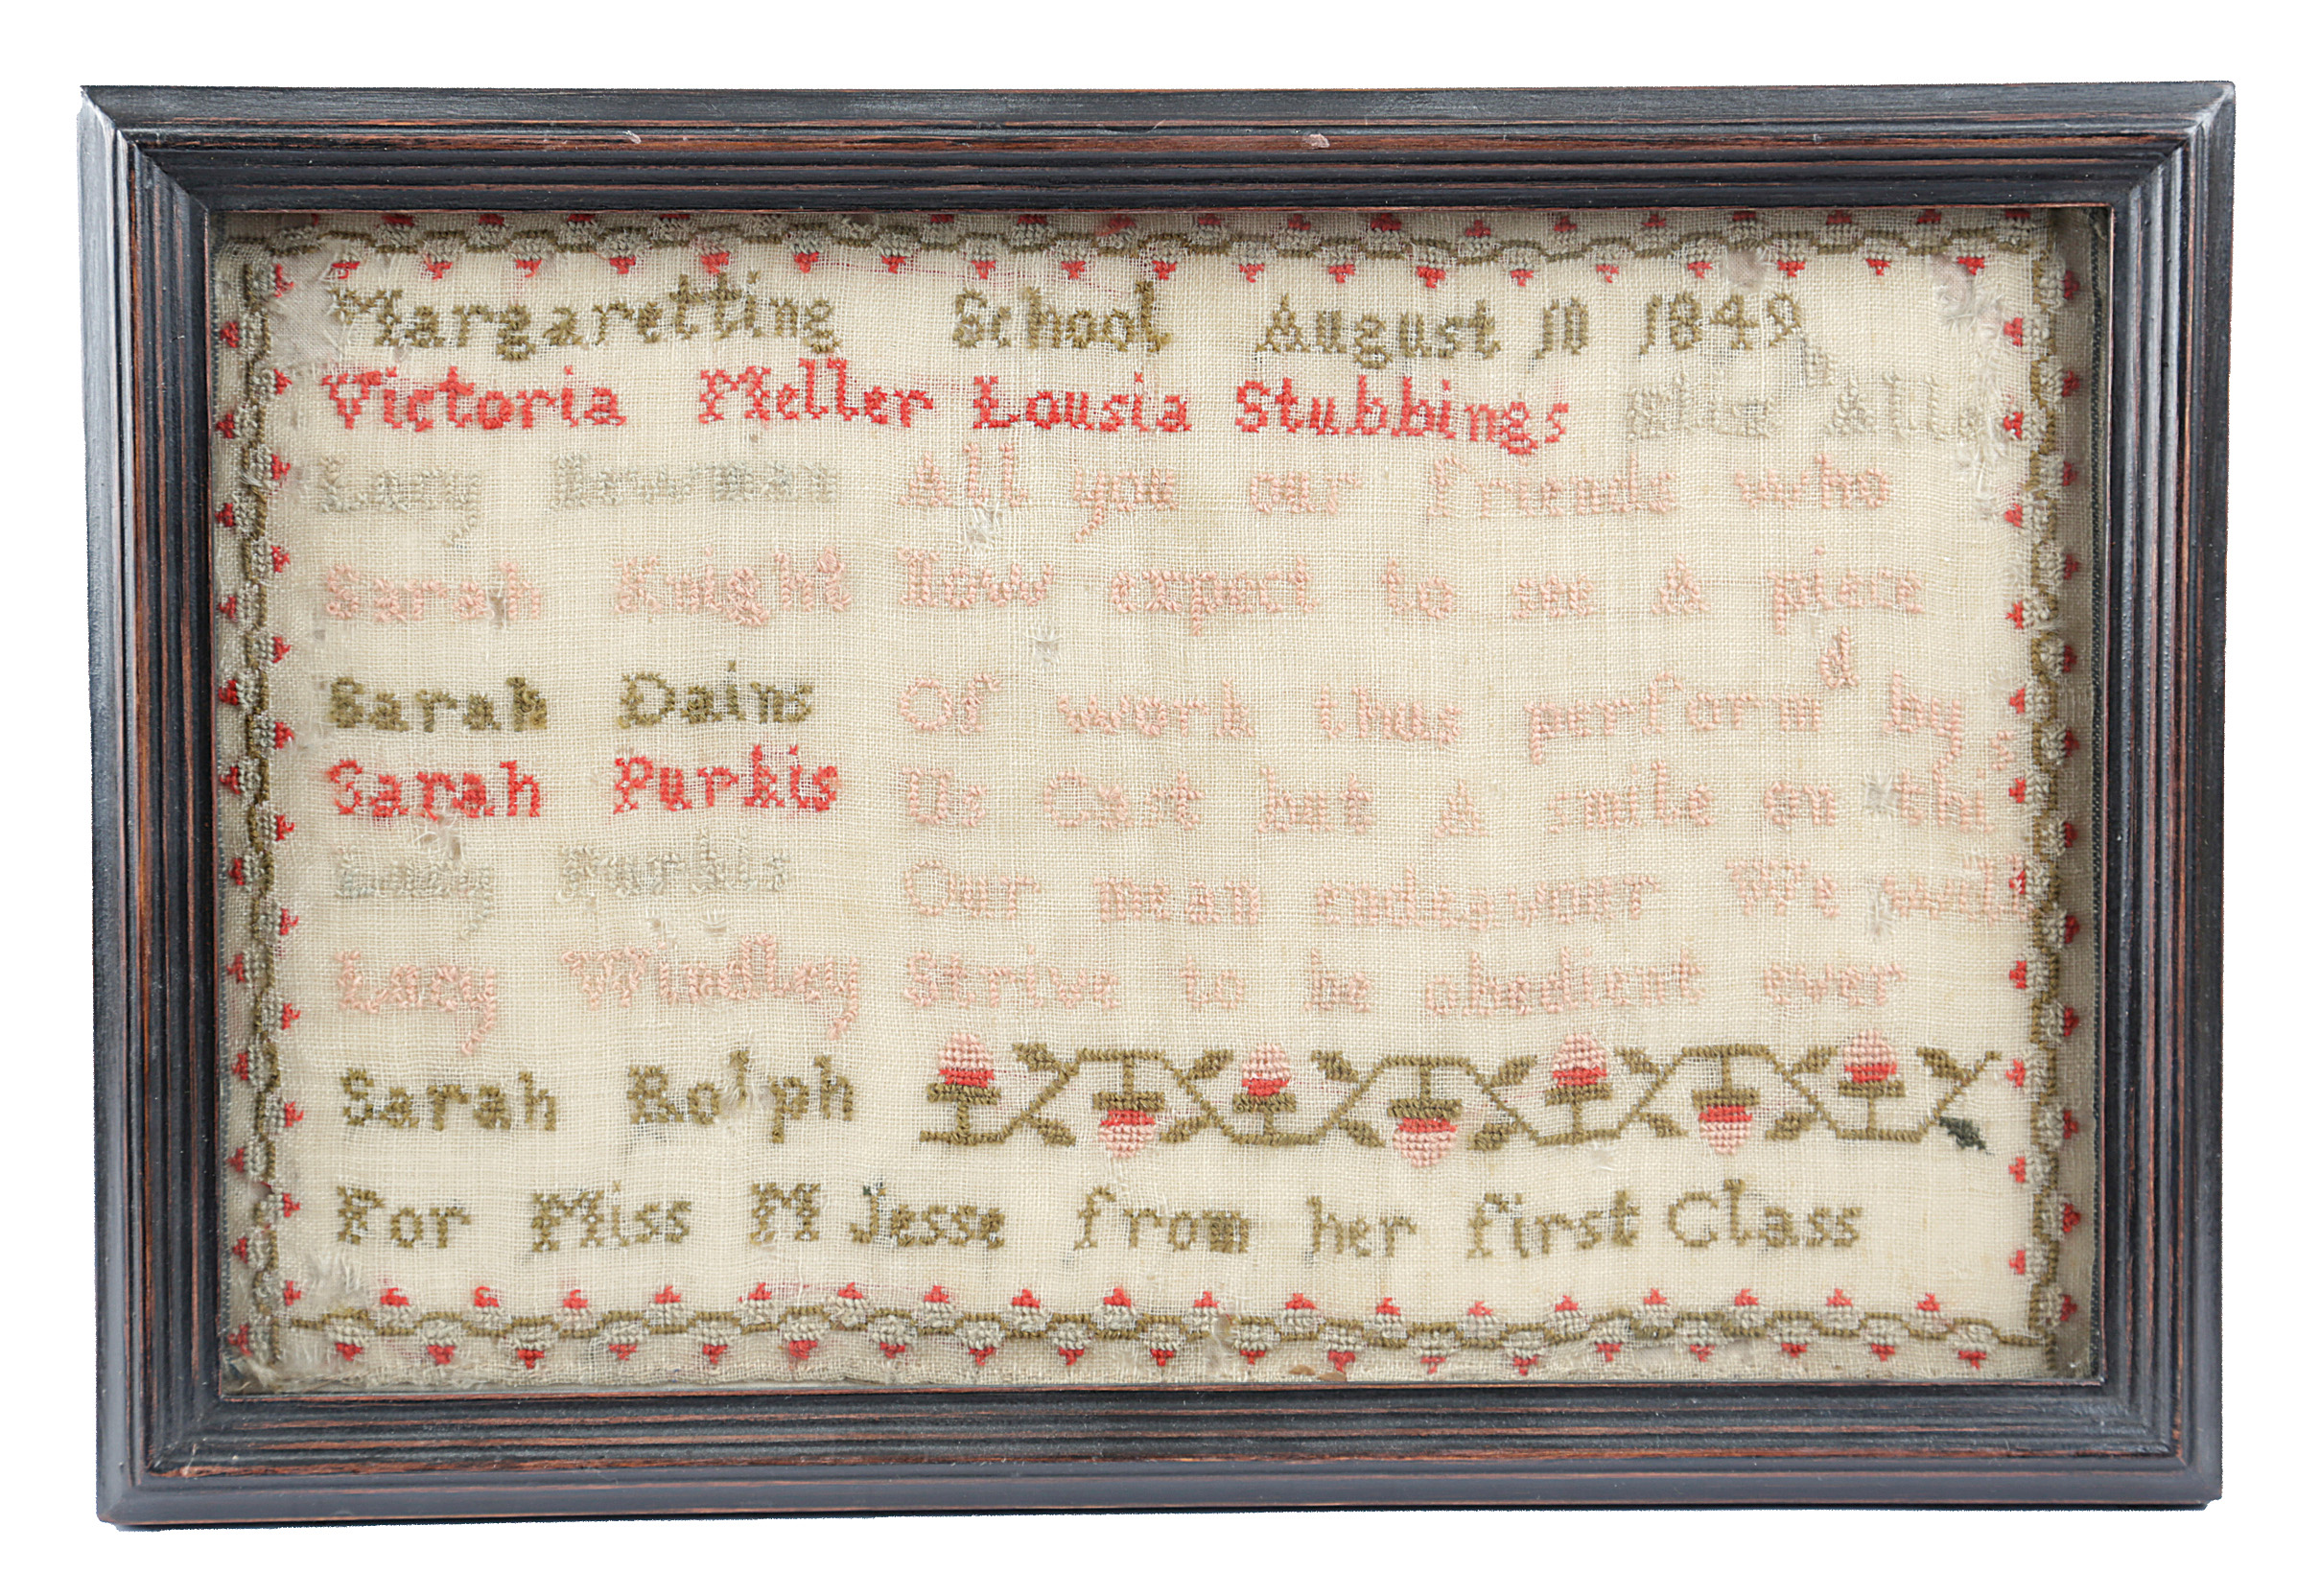 Margaretting School August 10 1849
Victoria Meller Lousia Stubbings Eliz
Lucy Bowman All you our friends who
Sarah Knight Now expect to see A piece
Sarah Dains Of work thus performd by
Sarah Purkis Us Cast but A smile on this
Lucy Purkis Our mean endeavour We will
Lucy Windley Strive to be obedient ever
Sarah Rolph
For Miss M Jesse from her first Class